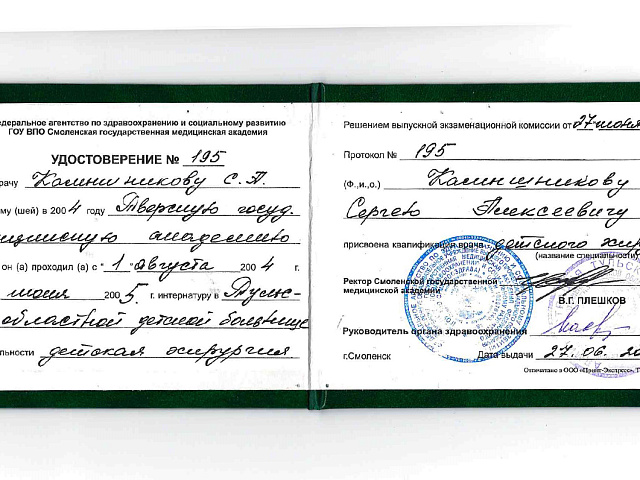 едеральное агентство по здравоохранению и социальному развитию
ГОУ ВПО Смоленская государственная медицинская академия
УДОСТОВЕРЕНИЕ № 195
рачу Калининикову С. А.
му (шей) в 2004 году Тверскую госуд.
ицинскую академию
он (а) проходил (а) с "1" августа 2004 г.
июня 2005 г. интернатуру в Туль-
областной детской больнице
льности детская хирургия
Решением выпускной экзаменационной комиссии от 27 июня
Протокол № 195
(Ф.,и.,о.) Калининикову
Сергею Алексеевичу
присвоена квалификация врача детского хир
(название специальности)
Ректор Смоленской государственной
медицинской академии
В.Г. ПЛЕШКОВ
Руководитель органа здравоохранения
г.Смоленск Дата выдачи 27.06.20
Отпечатано в ООО «Принт-Экспресс», Т